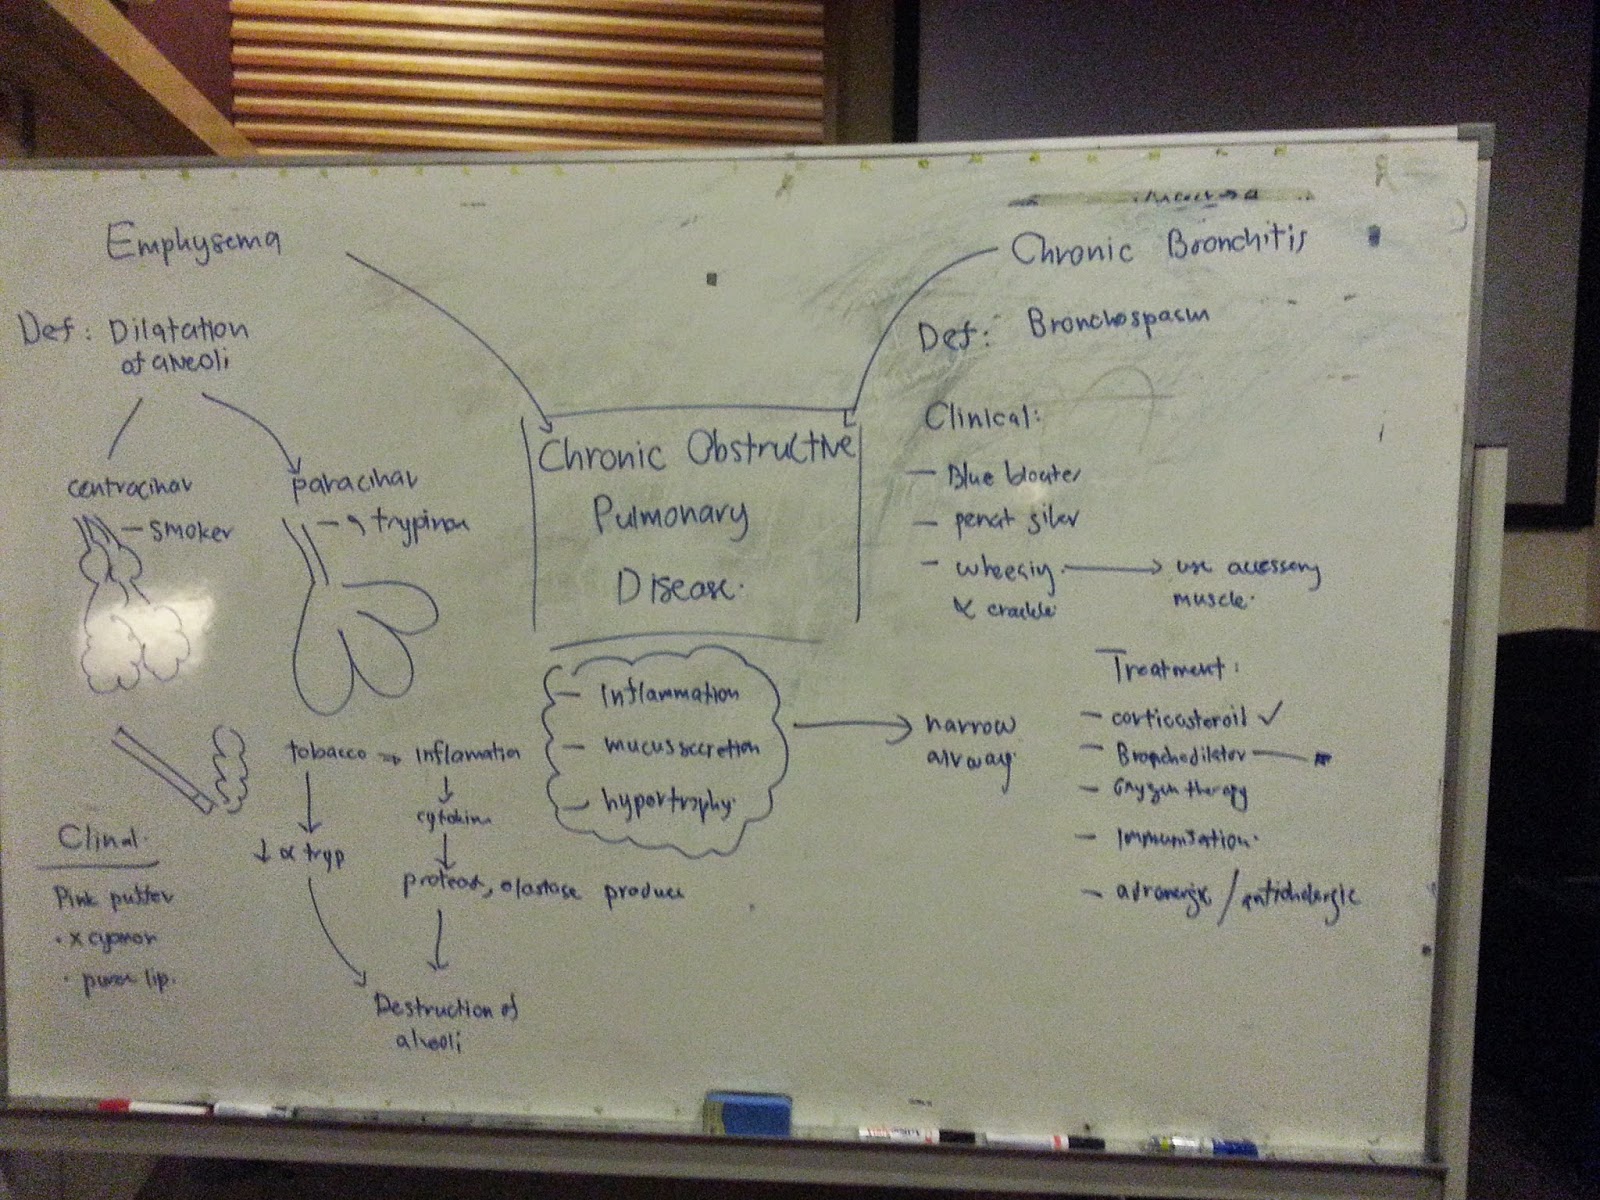 Emphysema
Def: Dilatation
of alveoli
centracinar
- smoker
paracinar
Chronic Obstructive
Pulmonary
Disease.
- Inflammation
- mucus secretion
- hypertrophy.
narrow
airway.
tobacco → inflamation
cytokin
↓ α tryp
proteas, elastase produce
Destruction of
alveoli
Clinal.
Pink puffer
lip.
Chronic Bronchitis
Def: Bronchospasm
Clinical:
- Blue bloater
- wheeziy → use accessory
& crackle muscle.
Treatment:
- corticosteroil ✓
- Bronchodilator
- Oxygen therapy
- Immunisation.
- adrenergic / anticholergic